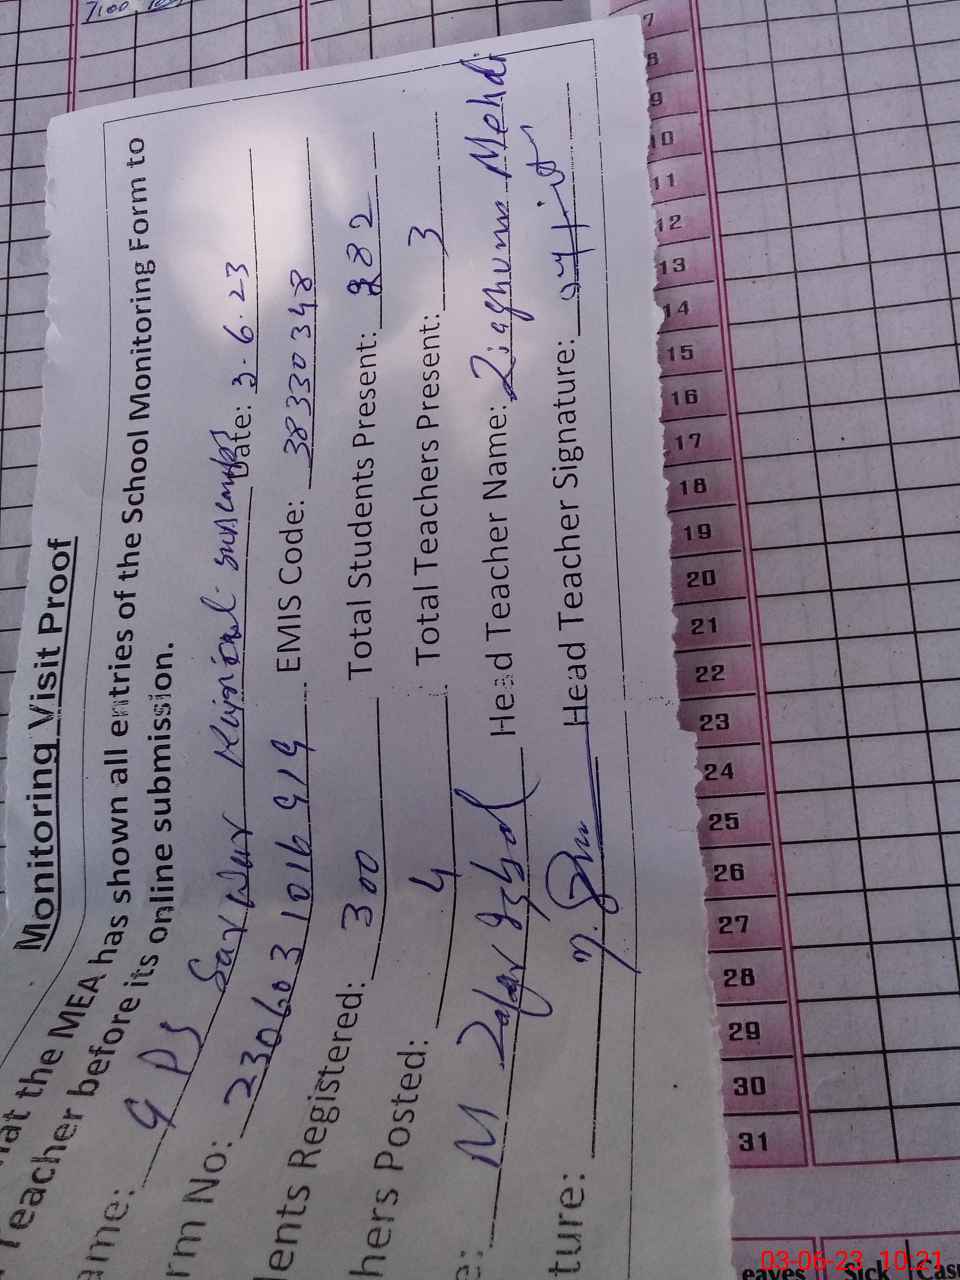 Monitoring Visit Proof
hat the MEA has shown all entries of the School Monitoring Form to
Teacher before its online submission.
ame: G PS Sarwar Date: 3.6.23
rm No: 230603 1016919 EMIS Code: 38330348
dents Registered: 300 Total Students Present: 282
hers Posted: 4 Total Teachers Present: 3
e: M Zafar Iqbal Head Teacher Name: Ziaghum Mehdi
ture: Head Teacher Signature:
7
8
9
10
11
12
13
14
15
16
17
18
19
20
21
22
23
24
25
26
27
28
29
30
31
eaves Sick Cas
03-06-23 10:21